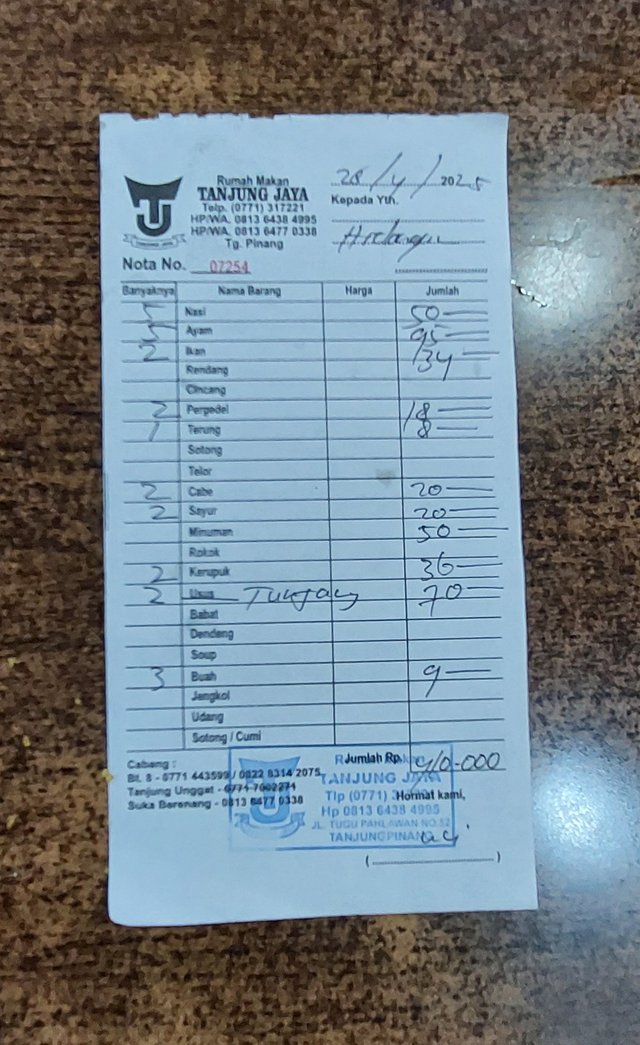 Rumah Makan
TANJUNG JAYA
Telp. (0771) 317221
HP/WA. 0813 6438 4995
HP/WA. 0813 6477 0338
Tg. Pinang
28/4/2025
Kepada Yth.
Nota No. 07254
Banyaknya Nama Barang Harga Jumlah
Nasi 50
Ayam 95
2 Ikan 34
Rendang
Cincang
2 Pergedel 18
1 Terung 8
Sotong
Telor
2 Cabe 20
2 Sayur 20
Minuman 50
Rokok
2 Kerupuk 36
2 Usus Tunjang 70
Babat
Dendeng
Soup
3 Buah 9
Jengkol
Udang
Sotong / Cumi
Jumlah Rp. 410.000
Cabang :
Bt. 8 - 0771 443599 / 0822 8314 2075
Tanjung Unggat - 0771 7002274
Suka Berenang - 0813 6477 0338
Hormat kami,
TANJUNG JAYA
Tlp (0771)
Hp 0813 6438 4995
JL. TUGU PAHLAWAN NO.52
TANJUNGPINANG